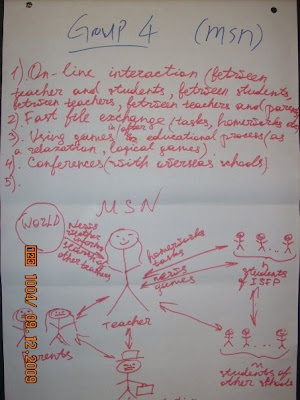 GROUP 4 (MSN)
1) On-line interaction (between
teacher and students, between students,
between teachers, between teachers and parents
2). Fast file exchange (tasks, homeworks
3). Using games in educational process (as
a relaxation, logical games)
4). Conferences (with overseas schools)
5).
MSN
WORLD
News
other teachers
homeworks
tasks
news
games
students
of ISFP
teacher
parents
students of
other schools
1004/09.12.2009